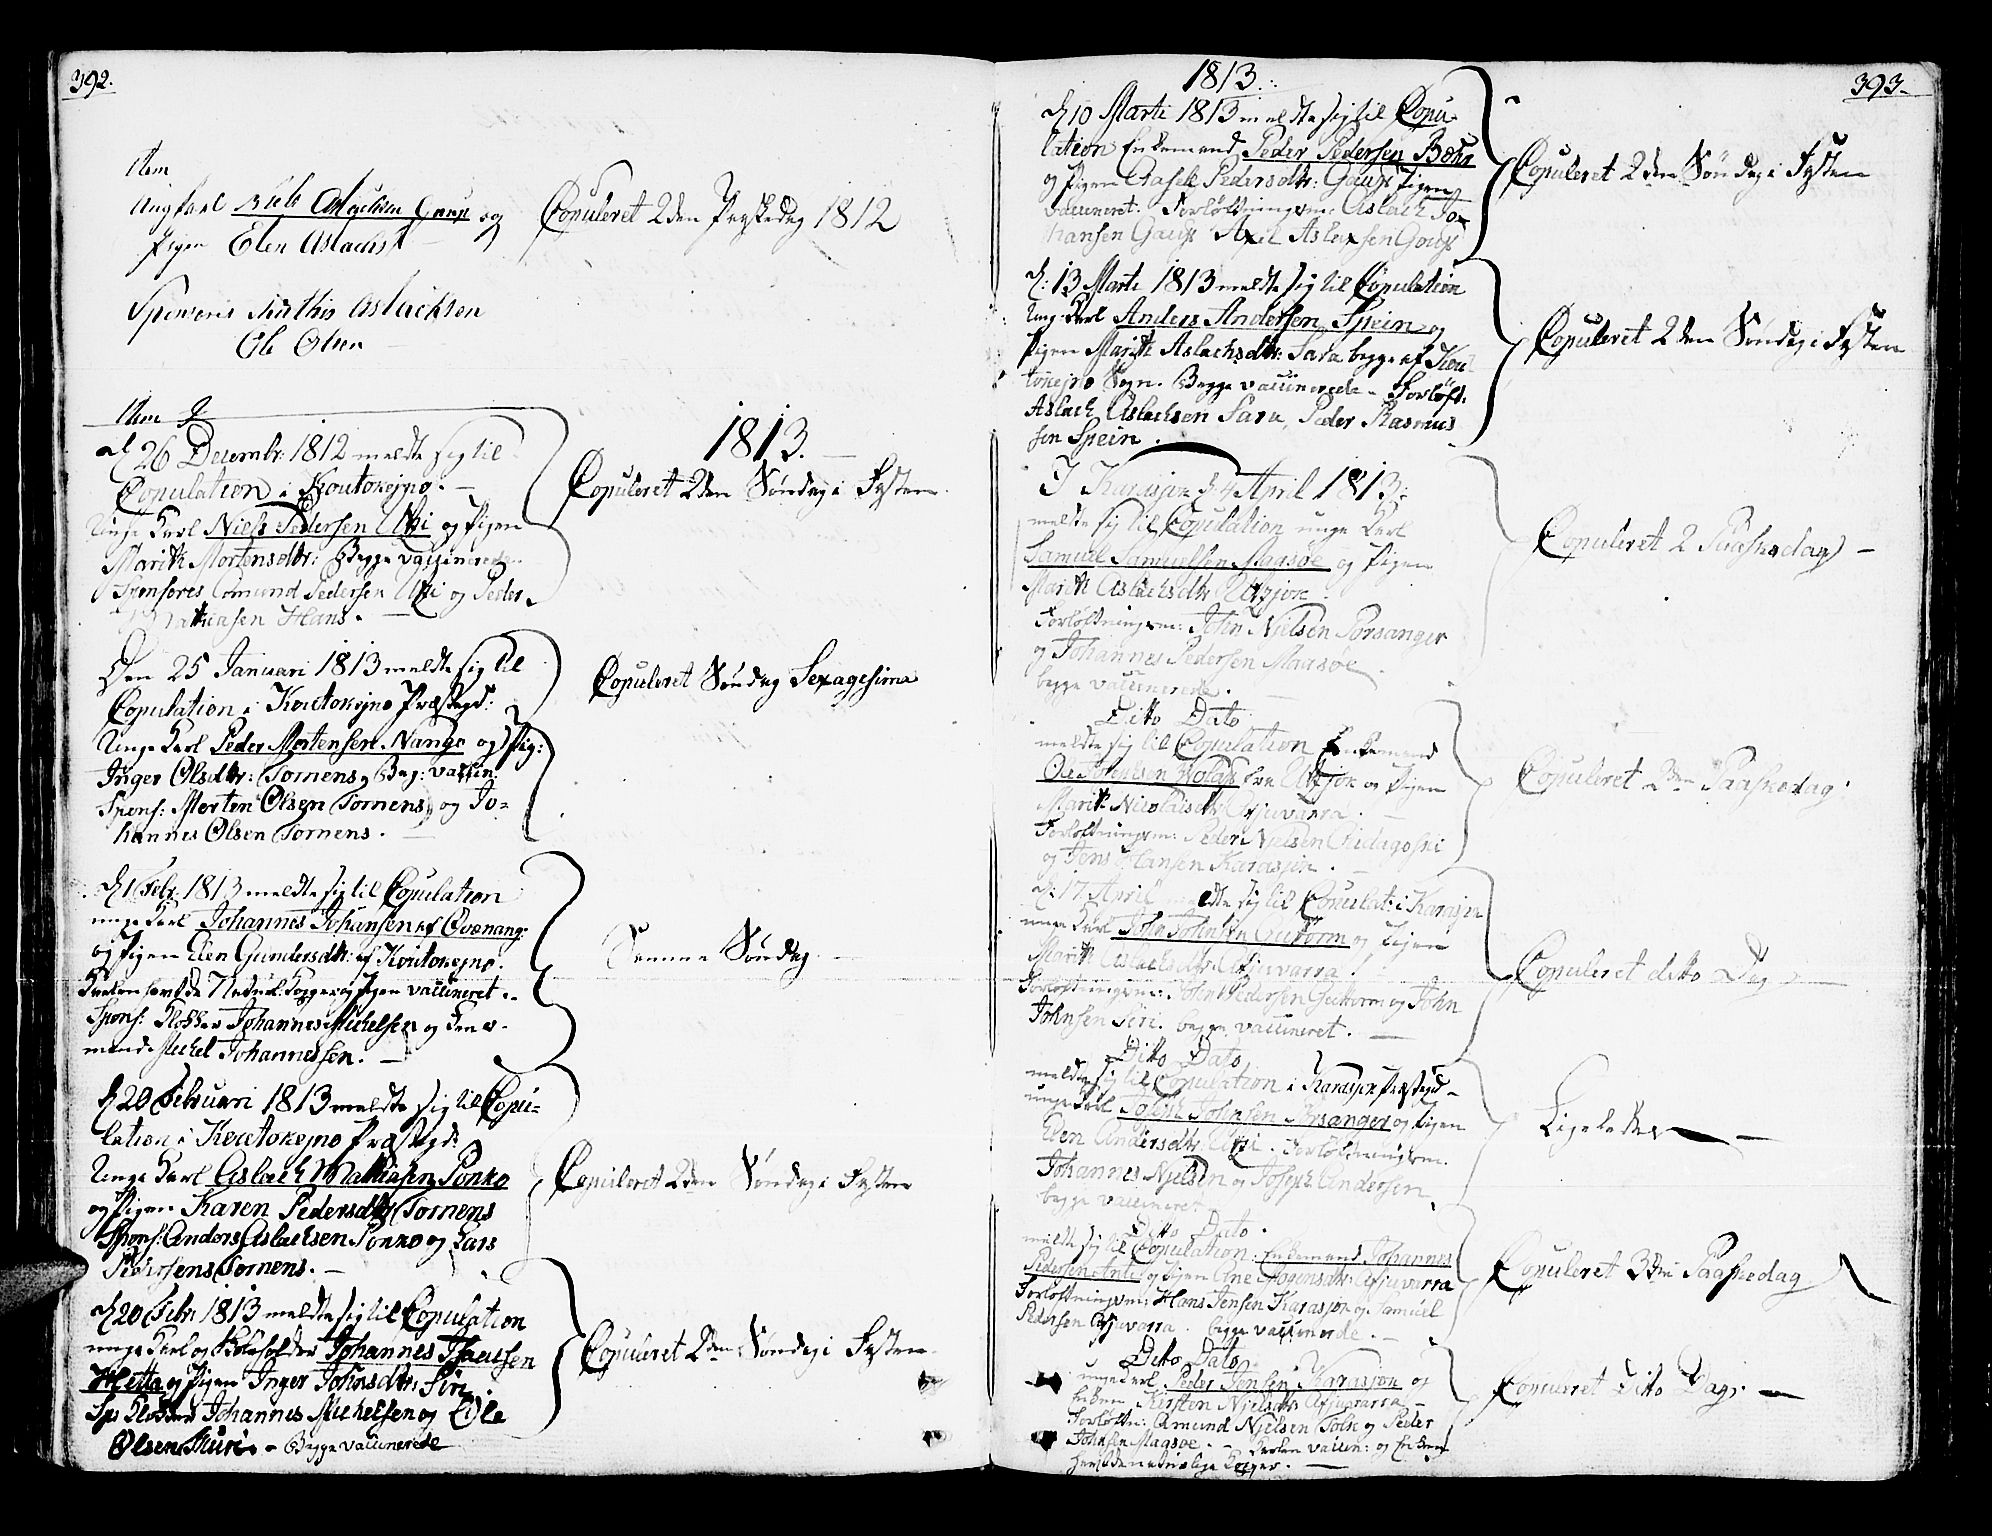 392.
Item
Ungkarl Niels Aslachsen Gaup og
Pigen Elen Aslachsd
Copuleret 2den Paaskedag 1812
Sponsores Mathis Aslachsen
Ole Olsen
Item
d 26 Decembr: 1812 meldte sig til
Copulation i Koutokejno. —
Unge Karl Niels Pedersen Utzi og Pigen
Marith Mortensdtr: Begge vaccinerede
Sponsores Amund Pedersen Utzi og Peder
Mathiasen Hans. —
1813. —
Copuleret 2den Søndag i Fasten.
Den 25 Januari 1813 meldte sig til
Copulation i Koutokejno Præstegd:
Unge Karl Peder Mortensen Nango og Pig:
Inger Olsdtr: Tornens, Beg: vaccin:
Spons: Morten Olsen Tornens, og Jo-
hannes Olsen Tornens. —
Copuleret Søndag Sexagesima
d 1 Febr: 1813 meldte sig til Copulation
unge Karl Johannes Johansen af Qvænang:
og Pigen Elen Gundersdtr: af Koutokejno.
Karlen havt de Naturl: Kopper og Pigen vaccineret. -
Spons: Klokker Johannes Michelsen og
Michel Johannessen. —
Samme Søndag. —
d 20 Februari 1813 meldte sig til Copu-
lation i Koutokejno Præstegd:
Unge Karl Aslach Mathiasen Ponko
og Pigen Karen Pedersdtr Tornens
Spons: Anders Aslachsen Ponko og Lars
Pedersen Tornens. —
Copuleret 2den Søndag i Fasten
d 20 Febr: 1813 meldte sig til Copulation
unge Karl og Johannes Isacsen
Hetta og Pigen Inger Johnsdtr: Siri.
Sp: Klokker Johannes Michelsen og Ole
Olsen Muri. - Begge vaccinerede
Copuleret 2den Søndag i Fasten
393.
1813.
d 10 Marti 1813 meldte sig til Copu-
lation Enkemand Peder Pedersen Bæhr
og Pigen Aasele Pedersdtr: Gaup Pigen
vaccineret. Forløftningsm: Aslach Jo-
hansen Gaup Axel Aslaksen Gaup
Copuleret 2den Søndag i Fasten
d: 13 Marti 1813 meldte sig til Copulation
Ung Karl Anders Andersen Spein og
Pigen Marith Aslachsdtr: Sara begge af Kou-
tokejno Sogn. Begge vaccinerede - Forløft:
Aslach Aslachsen Sara, Peder Rasmus-
sen Spein.
Copuleret 2den Søndag i Fasten
I Karasjok d 4 April 1813:
meldte sig til Copulation unge Karl
Samuel Samuelsen Maasøe og Pigen
Marith Aslachsdtr Utzjok.
Forløftningsm: John Nielsen Porsanger
og Johannes Pedersen Maasøe.
begge vaccinerede.
Copuleret 2 Paaskedag —
Ditto Dato
meldte sig til Copulation Enkemand
fra Utzjok og Pigen
Marith Nicolaisdtr Afjuvarra.
Forløftningsm: Peder Nielsen
og Jens Hansen Karasjok.
Copuleret 2den Paaskedag.
d: 17 April meldte sig til Copulat: i Karasjok
unge Karl John Johnsen Guttorm og Pigen
Marith Aslachsdtr Afjuvarra.
Forløftningsm: John Pedersen Guttorm og John
Johnsen Siri. begge vaccineret. —
Copuleret ditto Dag —
Ditto Dato
meldte sig til Copulation i Karasjok Præstegd -
unge Karl Joseph Johnsen Porsanger og Pigen
Elen Andersdtr Utzi. Forløftningsm:
Johannes Nielsen og Joseph Andersen.
begge vaccineret
Ligeledes —
Ditto Dato.
meldte sig til Copulation. Enkemand Johannes
Pedersen Anti og Pigen Ane Mogensdtr Afjuvarra
Forløftningsm: Hans Jensen Karasjok og Samuel
Pedersen Afjuvarra. begge vaccinerede. —
Copuleret 3die Paaskedag
Ditto Dato
unge Karl Peder Jensen Karasjok og
Enken Kirsten Nielsdtr Afjuvarra -
Forløftn: Amund Nielsen og Peder
Johnsen Maasøe. - Karlen vaccin: og Enken
havt de naturlige Kopper. —
Copuleret Ditto Dag. —